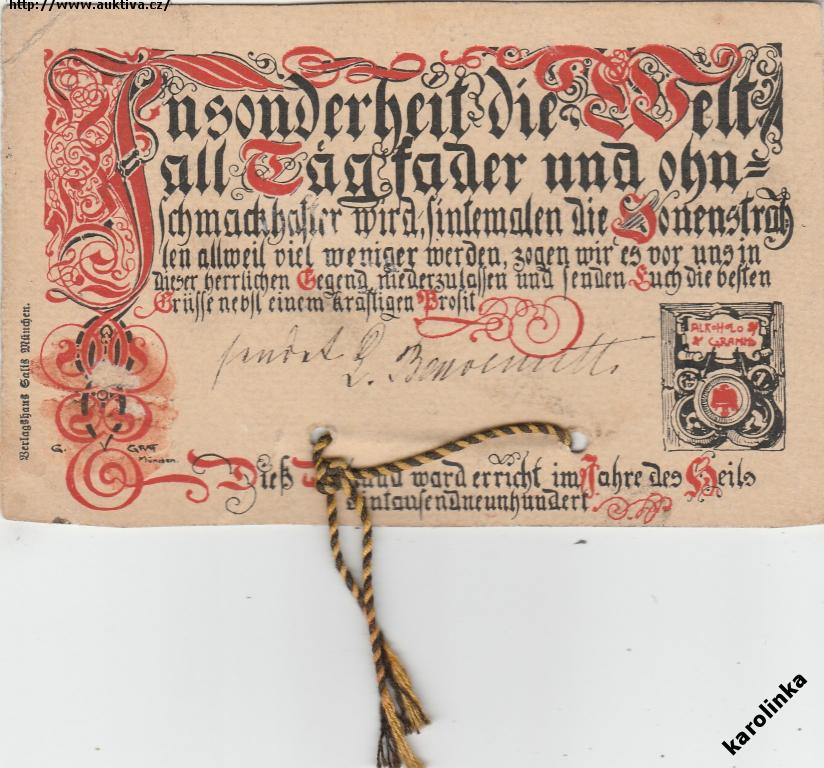 http://www.auktiva.cz/
Insonderheit die Welt
all Täg fader und ohn=
schmackhafter wird, sintemalen die Sonenstrah
len allweil viel weniger werden, zogen wir es vor uns in
dieser herrlichen Gegend niederzulassen und senden Euch die besten
Grüsse nebst einem kräftigen Prosit
sendet
ALKOHOLO
GRAMM
Verlagshaus Salis München.
G. GRAF
München.
Dieß ward erricht im Jahre des Heils
Eintausendneunhundert
karolinka